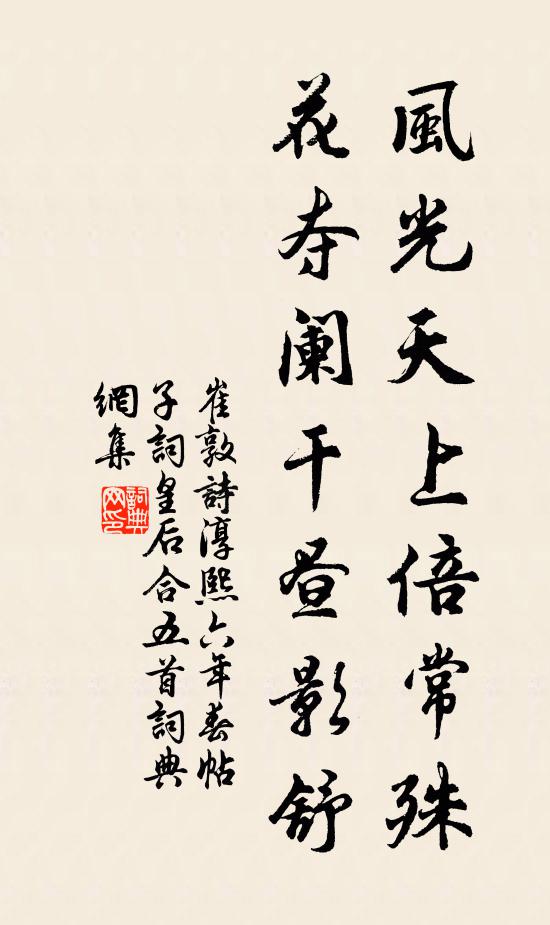 風光天上倍常殊
花夯阑干昼影舒
崔敦詩淳熙六年春帖
子詞皇后合五首詞典
網集
詞典
网印